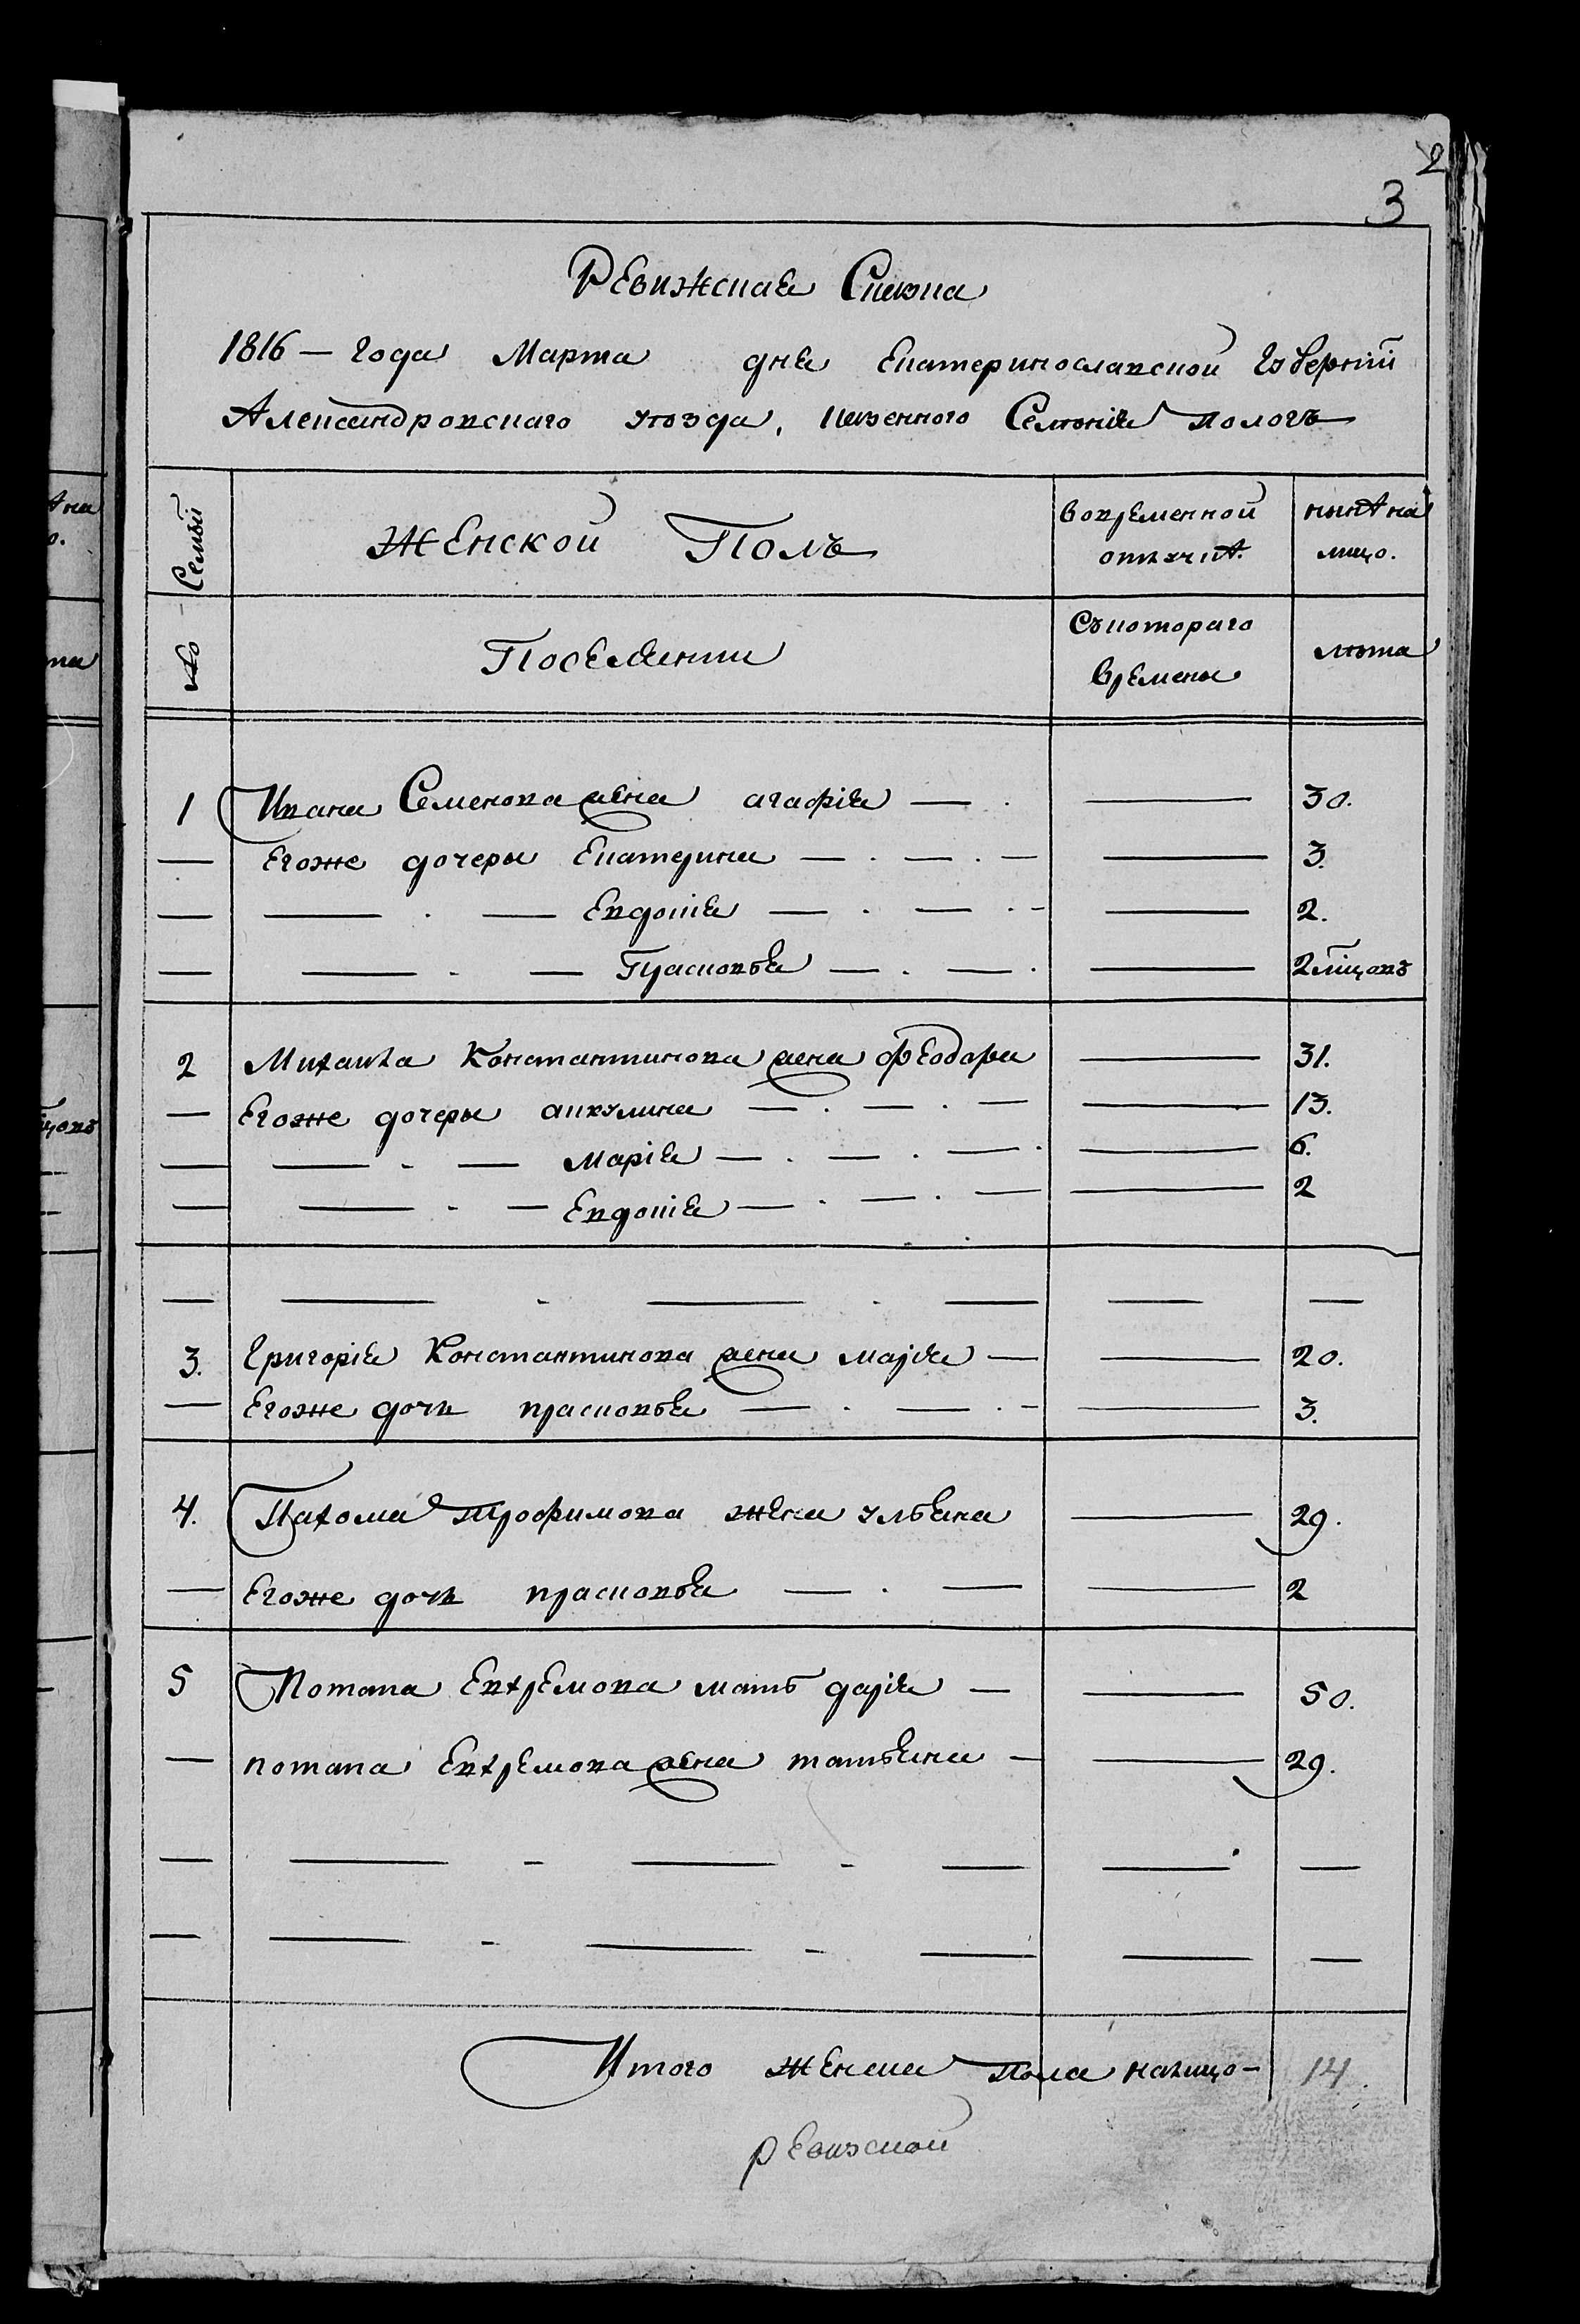 2
3
Ревижская Сказка
1816 — года Марта дня Екатеринославской Губерніи
Александровскаго уѣзда, казенного Селенія Пологъ
№ Семьи
Женской Полъ
вовременной отлучкѣ.
нынѣ на лицо.
Поселянки
Съкотораго времены
лѣта
1 Ивана Семенова жена агафія — 30.
— Егоже дочеры Екатерина — 3.
— Евдокія — 2.
— Прасковья — 2 мѣсцовъ
2 Михаила Константинова жена феодора — 31.
— Егоже дочеры акулина — 13.
— Марія — 6.
— Евдокія — 2
3. Григорія Константинова жена марія — 20.
— Егоже дочь прасковья — 3.
4. Пахома Трофимова жена ульяна — 29.
— Егоже дочь прасковья — 2
5 Потапа Евхремова мать дарія — 50.
— потапа Евхремова жена татьяна — 29.
Итого женска пола налицо — 14.
ревизской